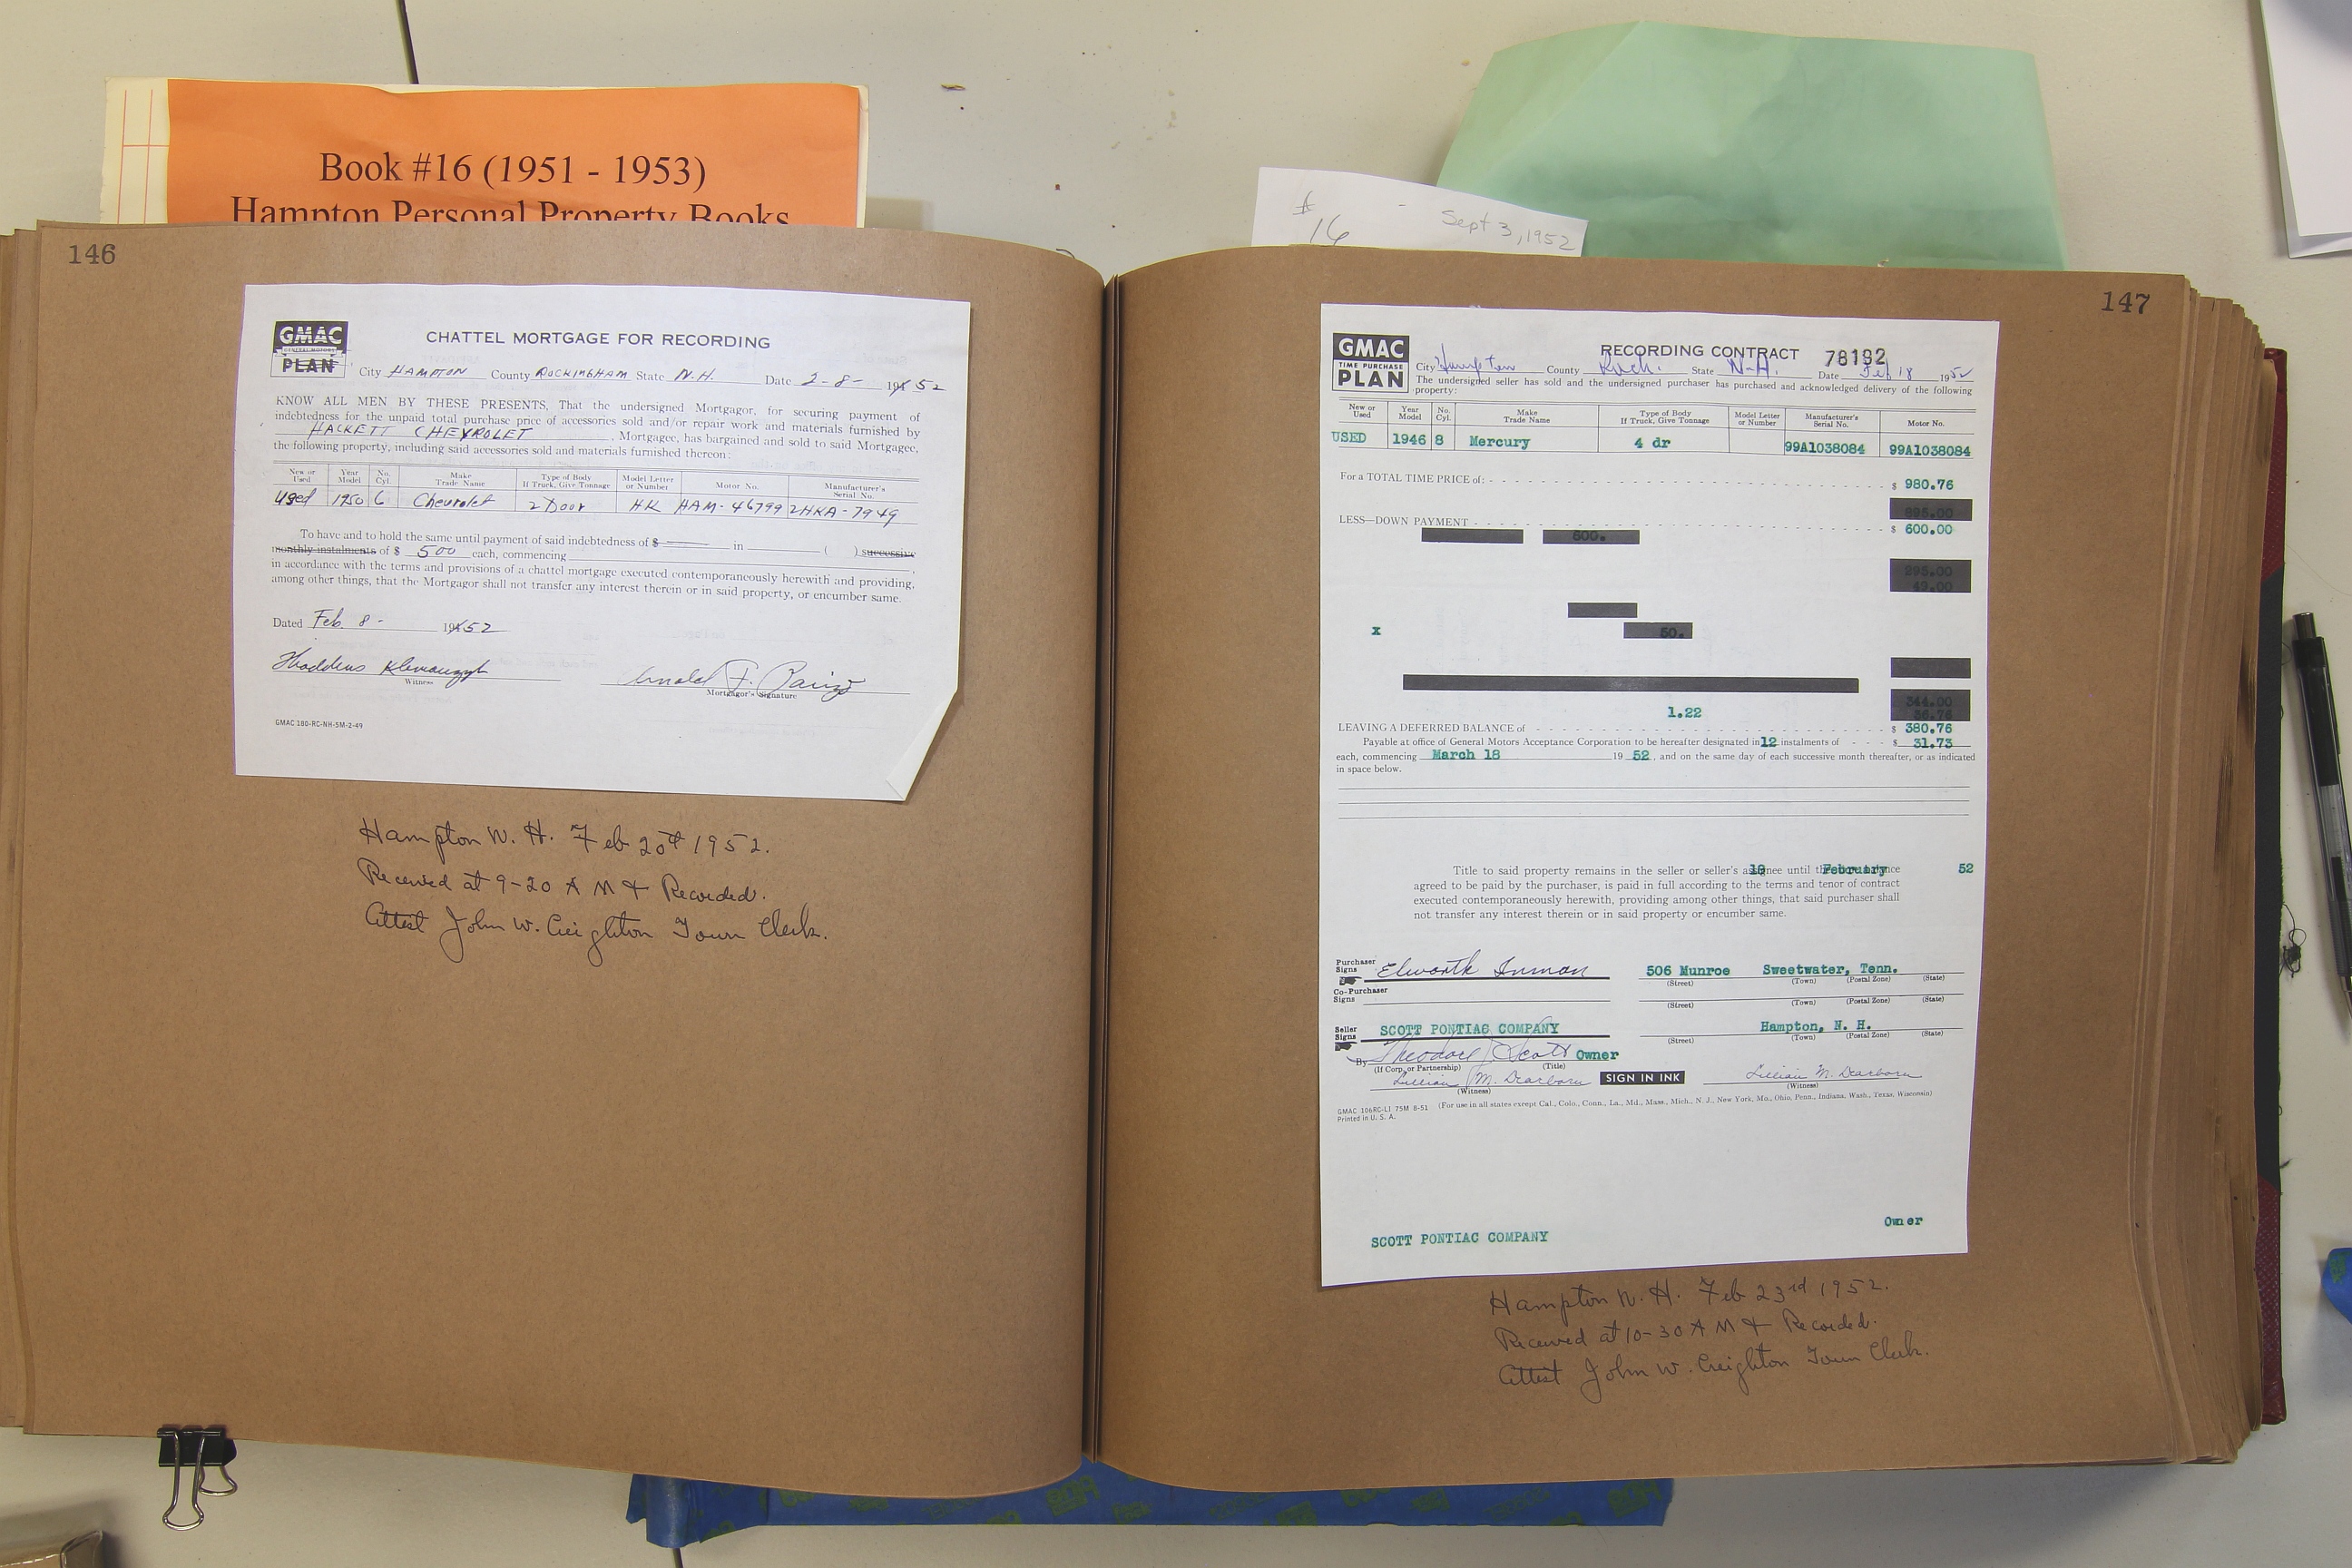 Book #16 (1951 - 1953)
Hampton Personal Property Books
16
- Sept 3, 1952
146
GMAC
GENERAL MOTORS
PLAN
CHATTEL MORTGAGE FOR RECORDING
City HAMPTON County ROCKINGHAM State N.H. Date 2-8- 1952
KNOW ALL MEN BY THESE PRESENTS, That the undersigned Mortgagor, for securing payment of
indebtedness for the unpaid total purchase price of accessories sold and/or repair work and materials furnished by
HACKETT CHEVROLET, Mortgagee, has bargained and sold to said Mortgagee,
the following property, including said accessories sold and materials furnished thereon:
New or Used Year Model No. Cyl. Make Trade Name Type of Body If Truck, Give Tonnage Model Letter or Number Motor No. Manufacturer's Serial No.
Used 1950 6 Chevrolet 2 Door HK HAM-46799 2HKA-7949
To have and to hold the same until payment of said indebtedness of $ in ( ) successive
monthly instalments of $ 500 each, commencing
in accordance with the terms and provisions of a chattel mortgage executed contemporaneously herewith and providing,
among other things, that the Mortgagor shall not transfer any interest therein or in said property, or encumber same.
Dated Feb. 8- 1952
Witness
Arnold F.
Mortgagor's Signature
GMAC 180-RC-NH-5M-2-49
Hampton N. H. Feb 20th 1952.
Received at 9-20 A M & Recorded.
Attest John W. Creighton Town Clerk.
147
GMAC
TIME PURCHASE
PLAN
RECORDING CONTRACT 78192
City Hampton County Rock. State N.H. Date Feb 18 1952
The undersigned seller has sold and the undersigned purchaser has purchased and acknowledged delivery of the following
property:
New or Used Year Model No. Cyl. Make Trade Name Type of Body If Truck, Give Tonnage Model Letter or Number Manufacturer's Serial No. Motor No.
USED 1946 8 Mercury 4 dr 99A1038084 99A1038084
For a TOTAL TIME PRICE of: $ 980.76
LESS—DOWN PAYMENT $ 600.00
x
1.22
LEAVING A DEFERRED BALANCE of $ 380.76
Payable at office of General Motors Acceptance Corporation to be hereafter designated in 12 instalments of $ 31.73
each, commencing March 18 19 52, and on the same day of each successive month thereafter, or as indicated
in space below.
Title to said property remains in the seller or seller's assignee until the balance 18 February 52
agreed to be paid by the purchaser, is paid in full according to the terms and tenor of contract
executed contemporaneously herewith, providing among other things, that said purchaser shall
not transfer any interest therein or in said property or encumber same.
Purchaser Signs Elworth Inman 506 Munroe Sweetwater, Tenn.
(Street) (Town) (Postal Zone) (State)
Co-Purchaser Signs
(Street) (Town) (Postal Zone) (State)
Seller Signs SCOTT PONTIAC COMPANY Hampton, N. H.
(Street) (Town) (Postal Zone) (State)
By Theodore J. Scott Owner
(If Corp. or Partnership) (Title)
Lillian M. Dearborn SIGN IN INK Lillian M. Dearborn
(Witness) (Witness)
GMAC 106RC-LI 75M 8-51 (For use in all states except Cal., Colo., Conn., La., Md., Mass., Mich., N. J., New York, Mo., Ohio, Penn., Indiana, Wash., Texas, Wisconsin)
Printed in U. S. A.
Owner
SCOTT PONTIAC COMPANY
Hampton N. H. Feb 23rd 1952.
Received at 10-30 A M & Recorded.
Attest John W. Creighton Town Clerk.